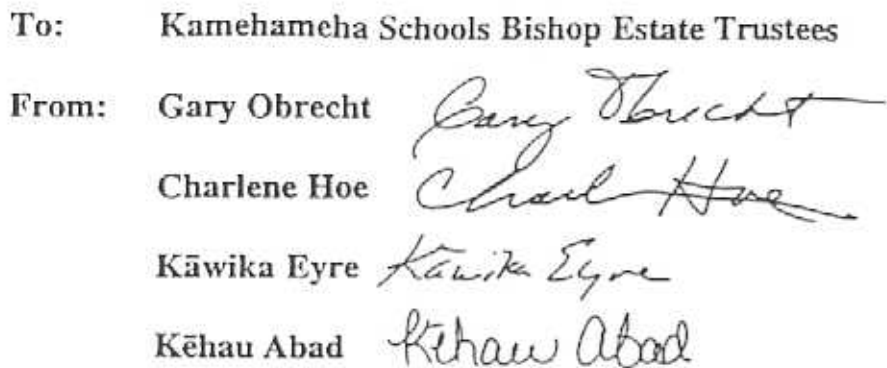 To: Kamehameha Schools Bishop Estate Trustees
From: Gary Obrecht Gary Obrecht
Charlene Hoe Charl Hoe
Kāwika Eyre Kāwika Eyre
Kēhau Abad Kēhau Abad